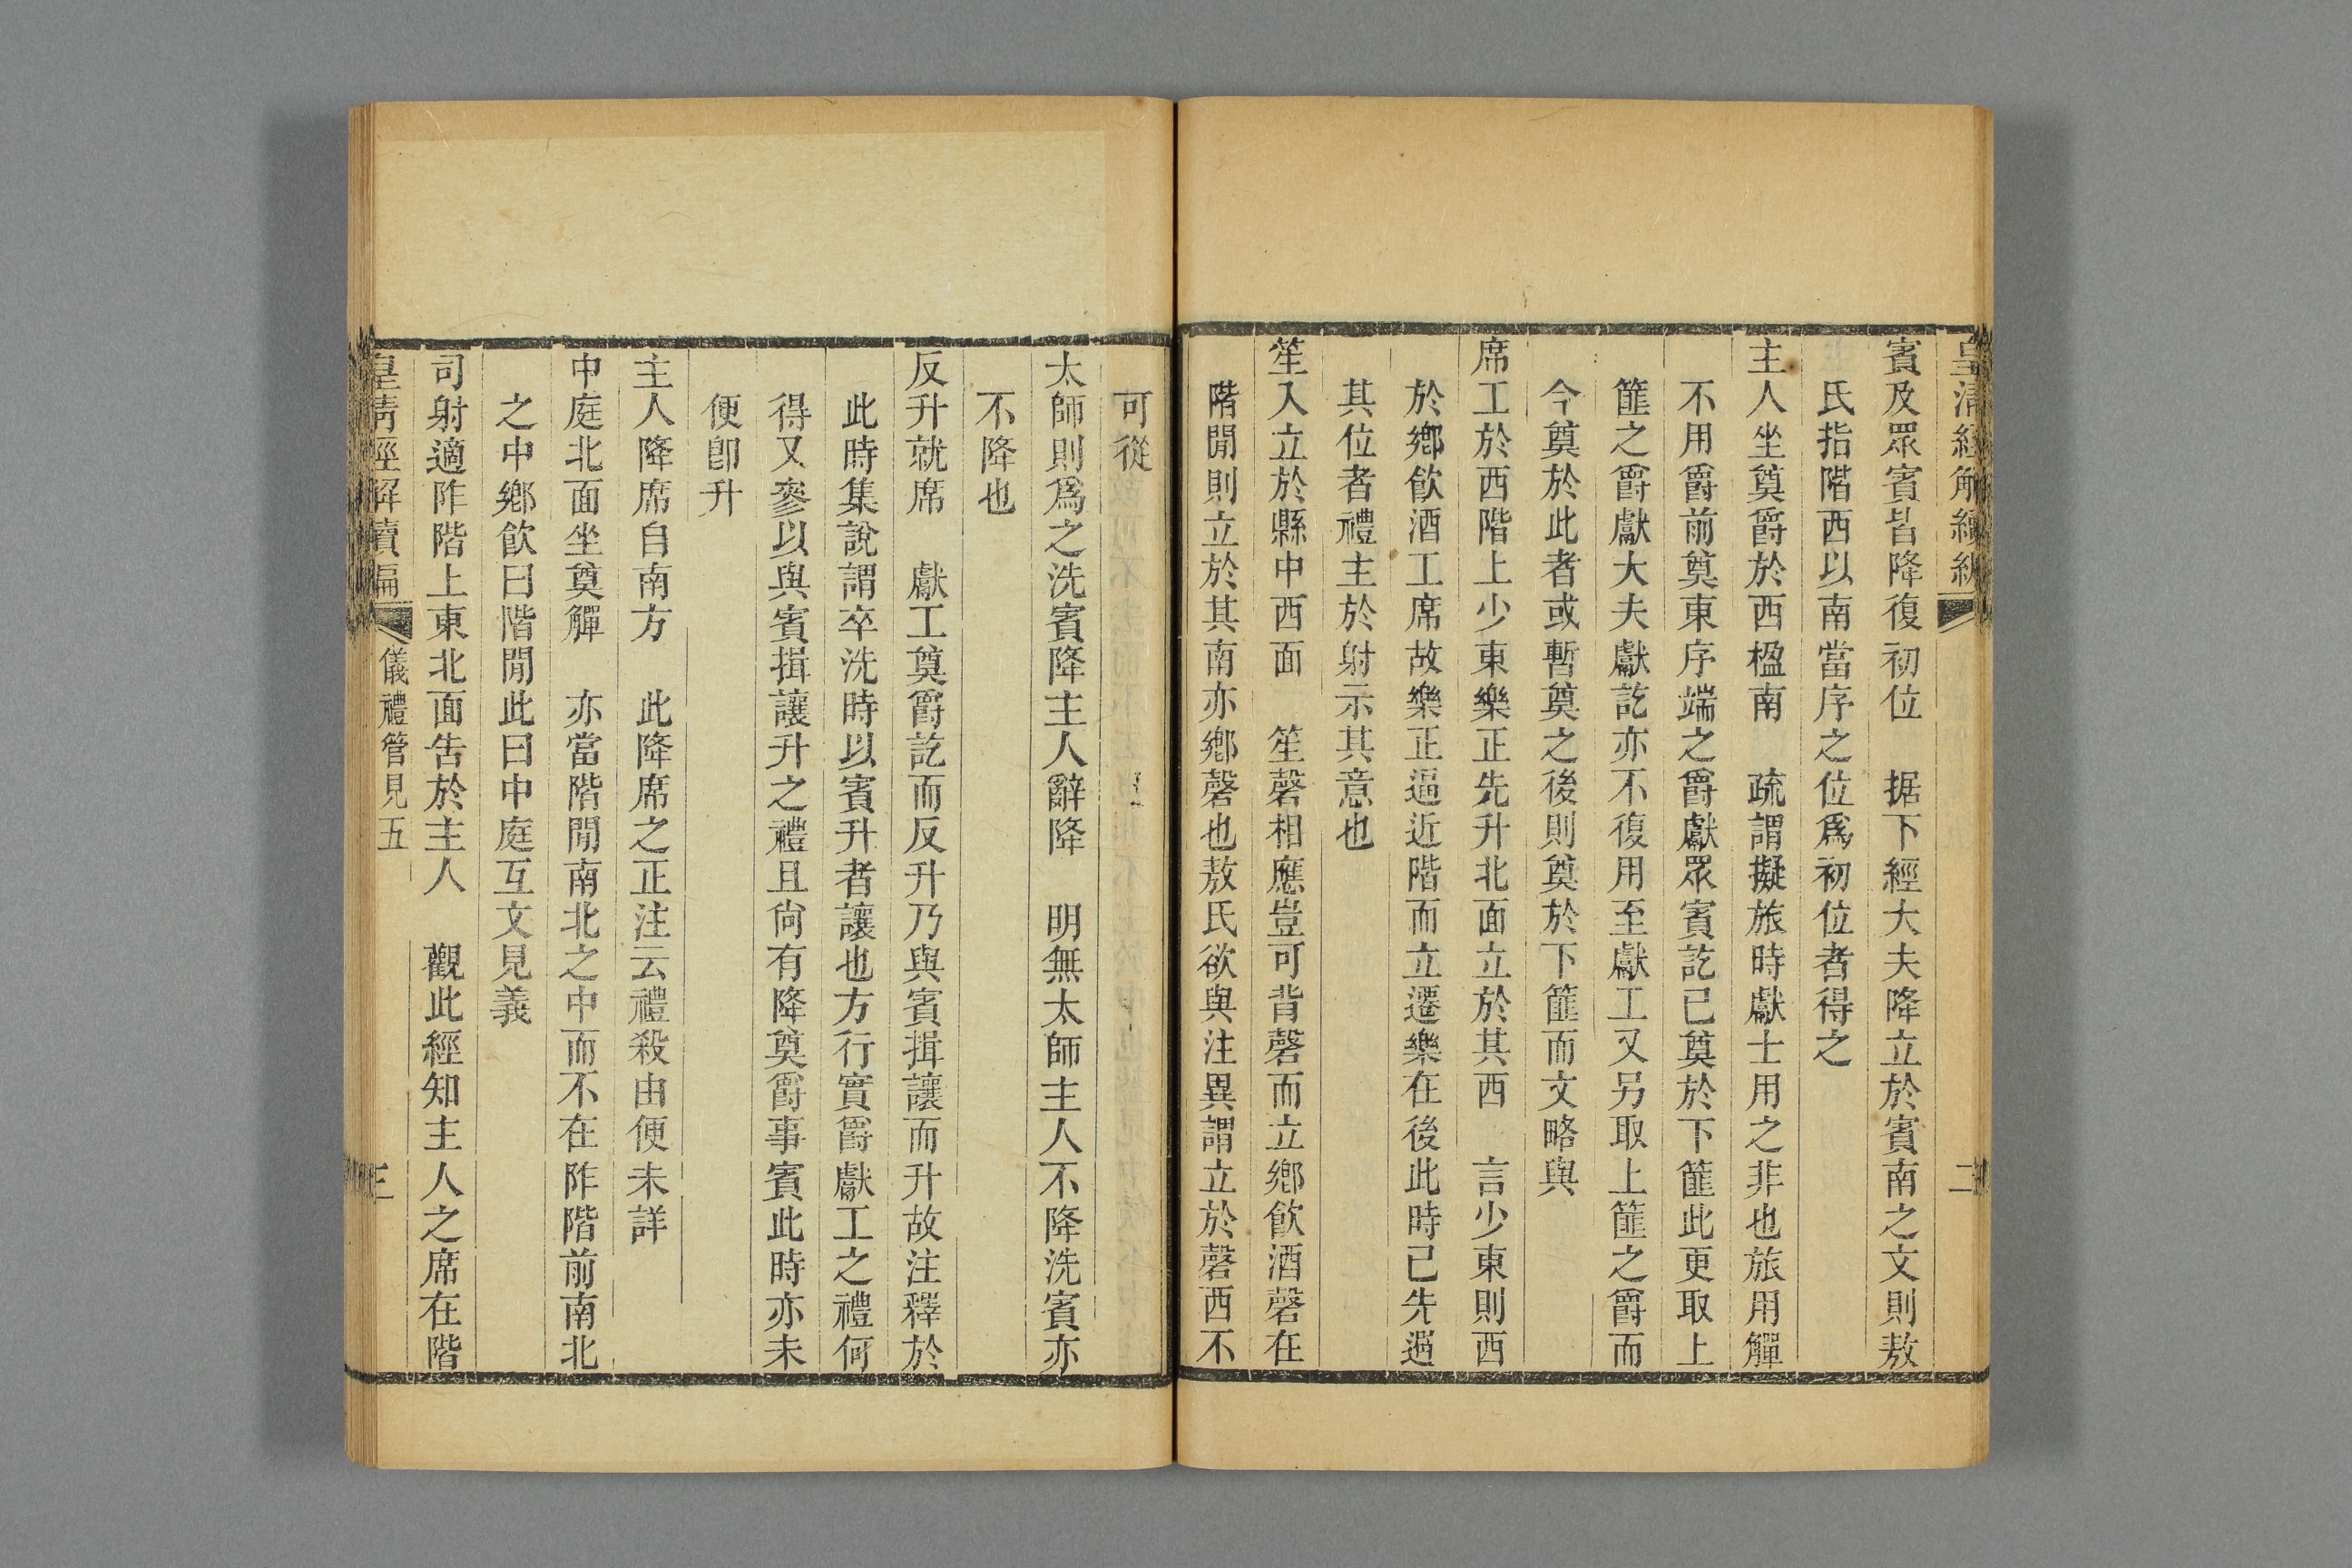 皇清經解續編 二
賓及眾賓皆降復初位　据下經大夫降立於賓南之文則敖
氏指階西以南當序之位爲初位者得之
主人坐奠爵於西楹南　疏謂擬旅時獻士用之非也旅用觶
不用爵前奠東序端之爵獻眾賓訖已奠於下篚此更取上
篚之爵獻大夫獻訖亦不復用至獻工又另取上篚之爵而
今奠於此者或暫奠之後則奠於下篚而文略與
席工於西階上少東樂正先升北面立於其西　言少東則西
於鄉飮酒工席故樂正逼近階而立遷樂在後此時已先過
其位者禮主於射示其意也
笙入立於縣中西面　笙磬相應豈可背磬而立鄉飮酒磬在
階閒則立於其南亦鄉磬也敖氏欲與注異謂立於磬西不
可從
太師則爲之洗賓降主人辭降　明無太師主人不降洗賓亦
不降也
反升就席　獻工奠爵訖而反升乃與賓揖讓而升故注釋於
此時集說謂卒洗時以賓升者讓也方行實爵獻工之禮何
得又參以與賓揖讓升之禮且尙有降奠爵事賓此時亦未
便卽升
主人降席自南方　此降席之正注云禮殺由便未詳
中庭北面坐奠觶　亦當階閒南北之中而不在阼階前南北
之中鄉飮曰階閒此曰中庭互文見義
司射適阼階上東北面告於主人　觀此經知主人之席在階
皇淸經解續編 儀禮管見五 三